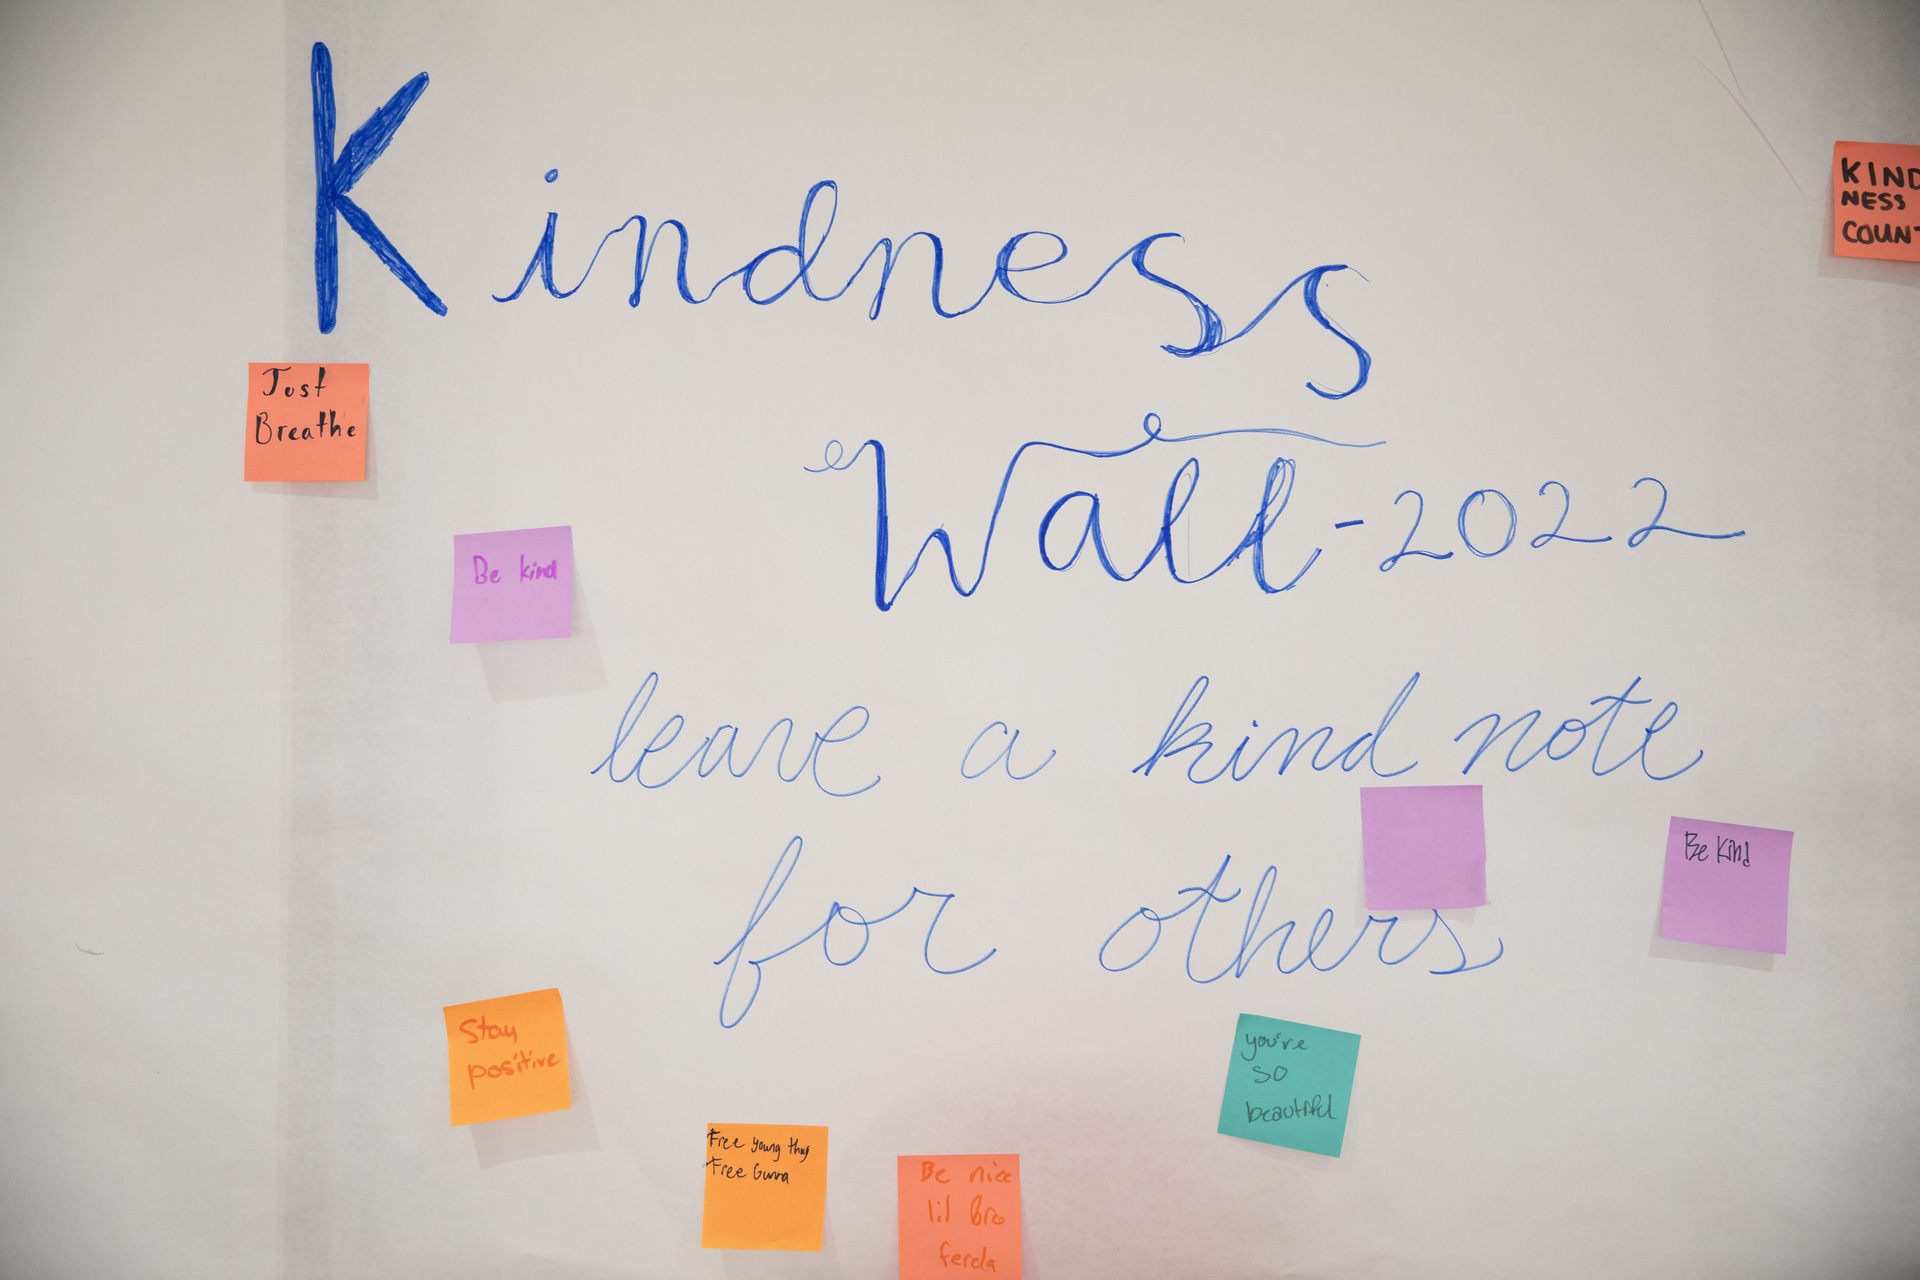 Kindness
Wall-2022
leave a kind note
for others
KIND
NESS
COUNT
Just
Breathe
Be kind
Be Kind
Stay
positive
you're
so
beautiful
Free young thug
Free Gunna
Be nice
lil Bro
ferda